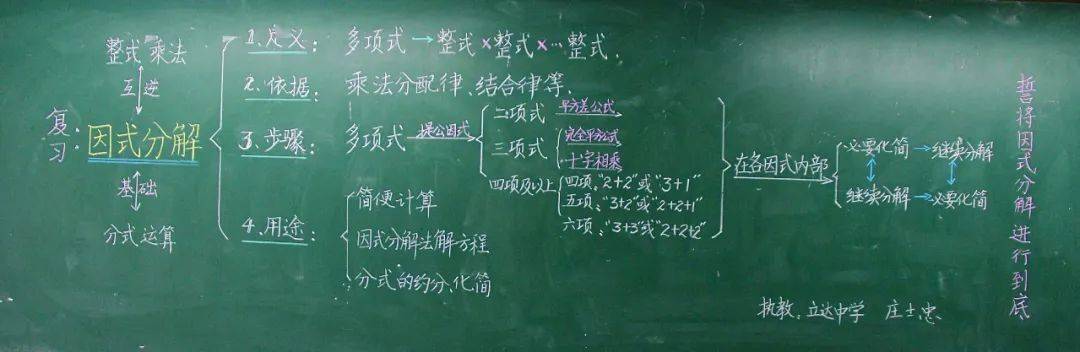 复习：
整式乘法
互逆
因式分解
基础
分式运算
1.定义：多项式→整式×整式×…整式.
2.依据：乘法分配律、结合律等.
3.步骤：多项式 提公因式
二项式 平方差公式
三项式 完全平方公式
十字相乘
四项及以上 四项："2+2"或"3+1"
五项："3+2"或"2+2+1"
六项："3+3"或"2+2+2"
在各因式内部
必要化简→继续分解
继续分解→必要化简
4.用途：
简便计算
因式分解法解方程
分式的约分、化简
誓将因式分解进行到底
执教：立达中学 庄士忠